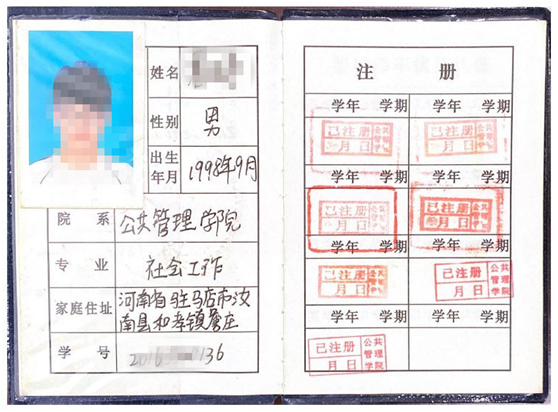 姓名
性别 男
出生年月 1998年9月
院系 公共管理学院
专业 社会工作
家庭住址 河南省驻马店市汝
南县和孝镇詹庄
学号 2016 136
注册
学年 学期 学年 学期
已注册 公共管理学院 月 日 已注册 公共管理学院 月 日
学年 学期 学年 学期
已注册 公共管理学院 月 日 已注册 公共管理学院 月 日
学年 学期 学年 学期
已注册 月 日 已注册 公共管理学院 月 日
学年 学期 学年 学期
已注册 公共管理学院 月 日